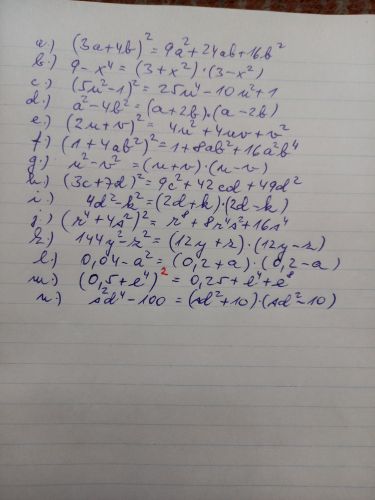 a.) (3a+4b)² = 9a²+24ab+16b²
b.) 9-x⁴ = (3+x²)·(3-x²)
c.) (5u²-1)² = 25u⁴-10u²+1
d.) a²-4b² = (a+2b)·(a-2b)
e.) (2u+v)² = 4u²+4uv+v²
f.) (1+4ab²)² = 1+8ab²+16a²b⁴
g.) u²-v² = (u+v)·(u-v)
h.) (3c+7d)² = 9c²+42cd+49d²
i.) 4d²-k² = (2d+k)·(2d-k)
j.) (r⁴+4s²)² = r⁸+8r⁴s²+16s⁴
k.) 144y²-z² = (12y+z)·(12y-z)
l.) 0,04-a² = (0,2+a)·(0,2-a)
m.) (0,5+e⁴)² = 0,25+e⁴+e⁸
n.) s²d⁴-100 = (sd²+10)·(sd²-10)